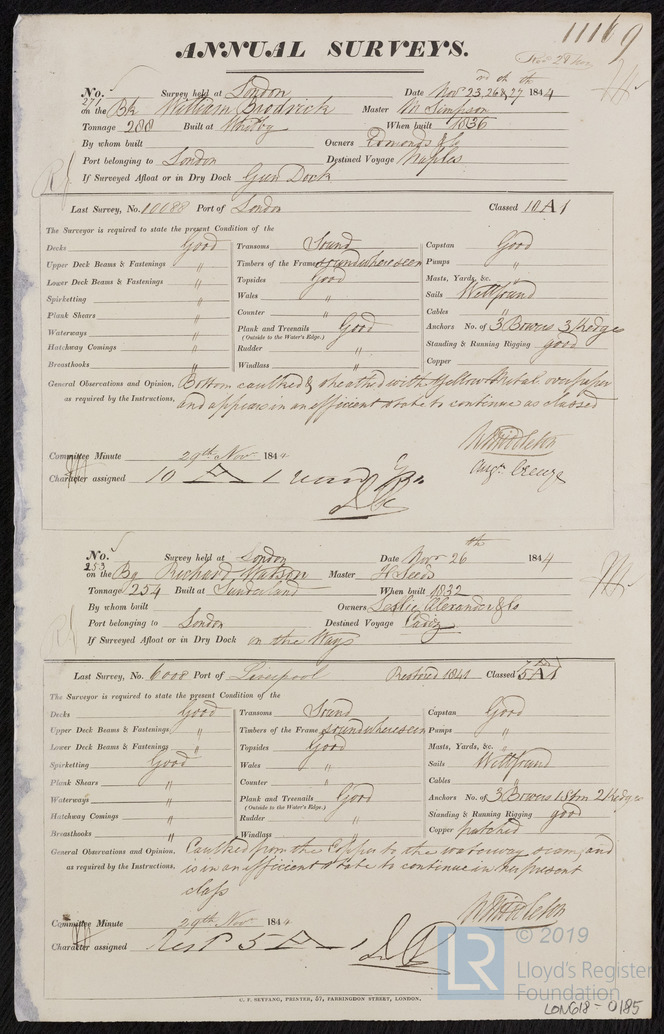 11169
ANNUAL SURVEYS.
No. 271 Survey held at London Date Nov 23rd, 26th & 27th 1844
on the Bk William Brodrick Master M Simpson
Tonnage 200 Built at Whitby When built 1836
By whom built Owners Edmonds & Co
Port belonging to London Destined Voyage Naples
If Surveyed Afloat or in Dry Dock Gun Dock
Last Survey, No. 10088 Port of London Classed 10 A 1
The Surveyor is required to state the present Condition of the
Decks Good Transoms Sound Capstan Good
Upper Deck Beams & Fastenings " Timbers of the Frame sound where seen Pumps "
Lower Deck Beams & Fastenings " Topsides Good Masts, Yards, &c. "
Spirketting " Wales " Sails Well found
Plank Shears " Counter " Cables "
Waterways " Plank and Treenails Good Anchors No. of 3 Bowers 3 Kedges
(Outside to the Water's Edge.)
Hatchway Comings " Rudder " Standing & Running Rigging good
Breasthooks " Windlass " Copper
General Observations and Opinion, Bottom caulked & sheathed with Yellow Metal over paper
as required by the Instructions, and appears in an efficient state to continue as classed
W Middleton
Augn Creuze
Committee Minute 29th Nov 1844
Character assigned 10 A 1
No. 253 Survey held at London Date Novr 26th 1844
on the Bg Richard Watson Master H Seeds
Tonnage 254 Built at Sunderland When built 1832
By whom built Owners Leslie Alexander & Co
Port belonging to London Destined Voyage Cadiz
If Surveyed Afloat or in Dry Dock on the Ways
Last Survey, No. 6008 Port of Liverpool Restored 1841 Classed 5 A 1
The Surveyor is required to state the present Condition of the
Decks Good Transoms Sound Capstan Good
Upper Deck Beams & Fastenings " Timbers of the Frame sound where seen Pumps "
Lower Deck Beams & Fastenings " Topsides Good Masts, Yards, &c. "
Spirketting Good Wales " Sails Well found
Plank Shears " Counter " Cables "
Waterways " Plank and Treenails Good Anchors No. of 3 Bowers 1 Strm 2 Kedges
(Outside to the Water's Edge.)
Hatchway Comings " Rudder " Standing & Running Rigging good
Breasthooks " Windlass " Copper patched
General Observations and Opinion, Caulked from the Copper to the waterway seam, and
as required by the Instructions, is in an efficient state to continue in her present
class
W Middleton
Committee Minute 29th Nov 1844
Character assigned Rest 5 A 1
C. F. SEYFANG, PRINTER, 57, FARRINGDON STREET, LONDON.
LR
© 2019
Lloyd's Register
Foundation
LON618-0185